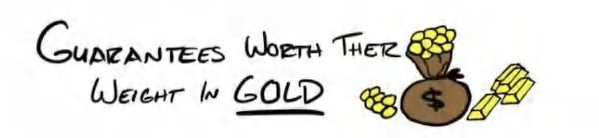 GUARANTEES WORTH THER
WEIGHT IN GOLD
$